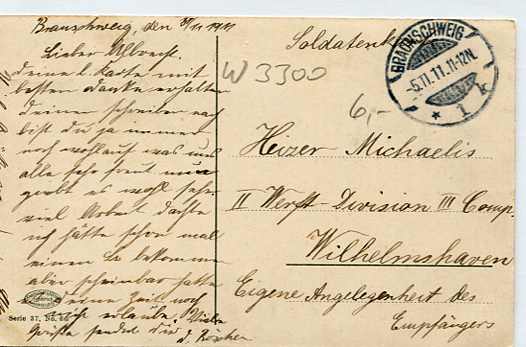 Braunschweig, den 4/11 1911
Lieber Albrecht.
deine l. Karte mit
besten Danke erhalten
deinen schreiben nach
bist du ja immer
noch wollauf was uns
alle sehr freut nun
giebt es wohl sehr
viel Arbeit dachte
ich hätte schon mal
einen bekommen
aber scheinbar hatte
deine Zeit noch
nicht erlaubt. Viele
Grüße sendet dir
Serie 37, No.
Soldatenk
W 3300
6,-
BRAUNSCHWEIG
-5.11.11.11-12N.
* 1 k
Heizer Michaelis
II Werft-Division III Comp.
Wilhelmshaven
Eigene Angelegenheit des
Empfängers